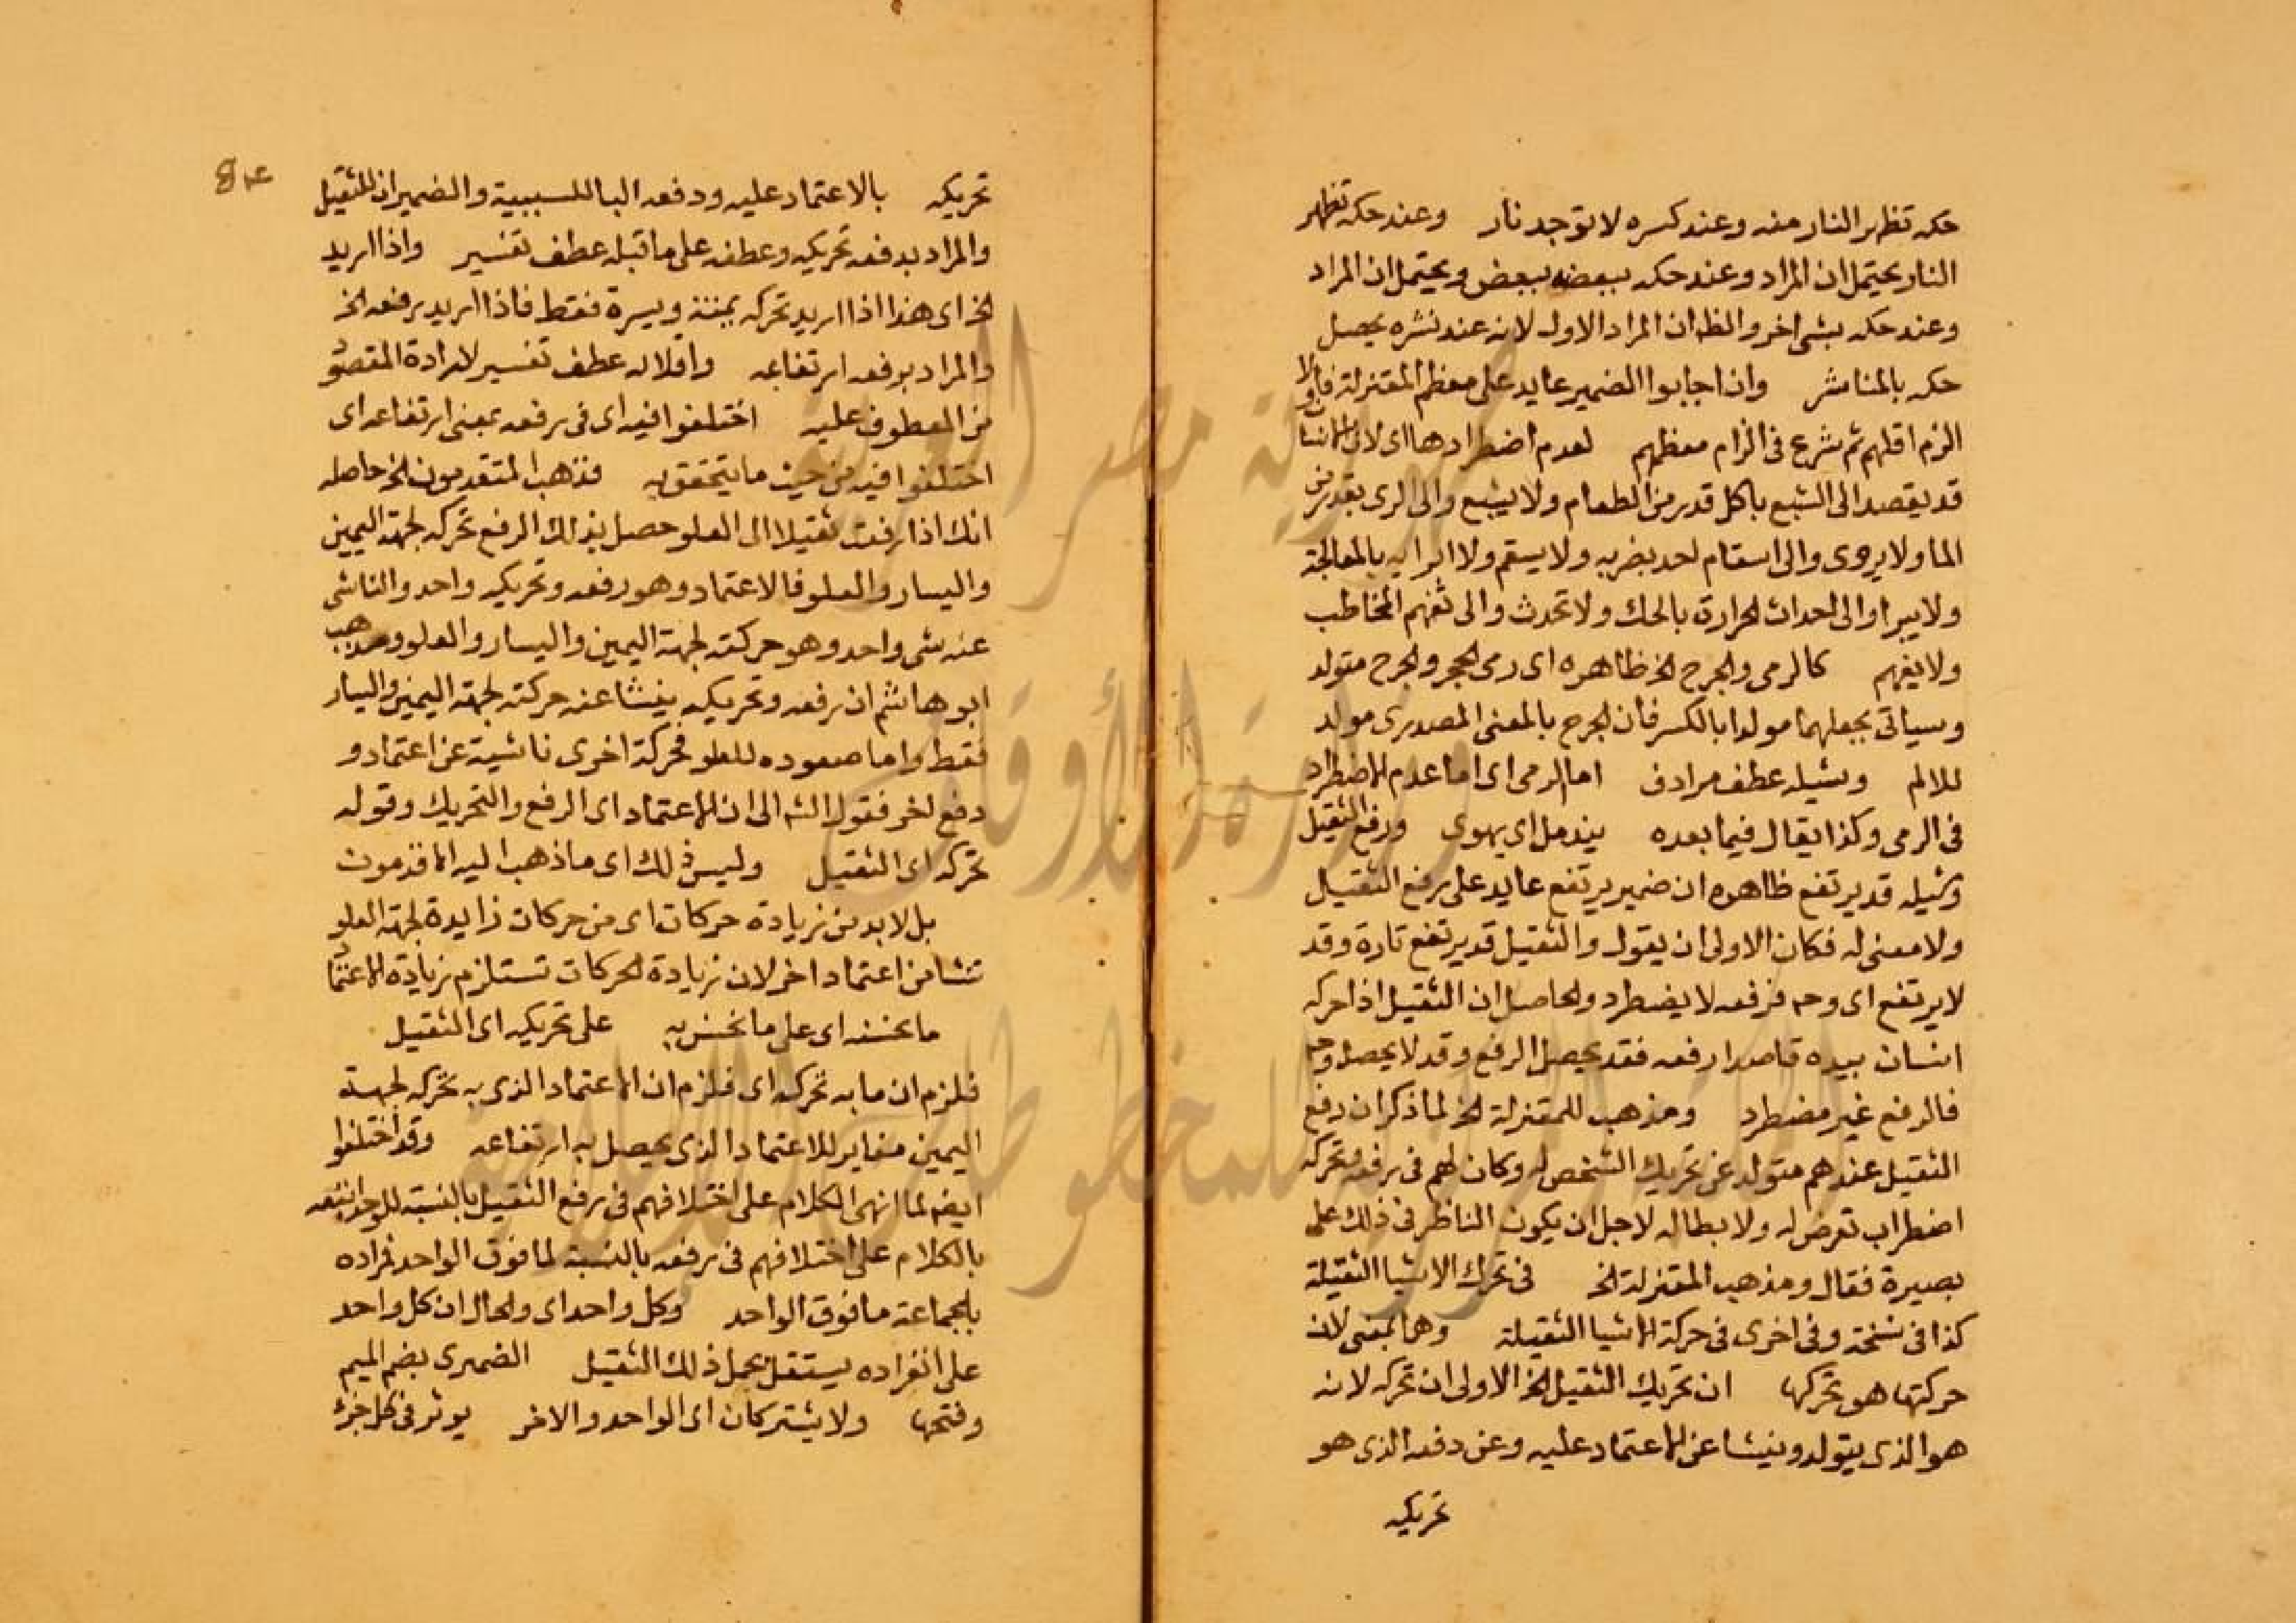 حكه تظهر النار منه وعند كسره لا توجد نار وعند حكه تظهر
النار يحتمل ان المراد وعند حكه ببعضه ببعض ويحتمل ان المراد
وعند حكه بشى اخر والظ ان المراد الاول لانه عند نشره يحصل
حكه بالمناشر وان اجابوا الضمير عايد على معظم المعتزلة فاولا
الزم اقلهم ثم شرع فى الزام معظمهم لعدم اضطرادها اى لان الانسا
قد يقصد الى الشبع باكل قدر من الطعام ولا يشبع والى الرى بقدر من
الما ولا يروى والى اسقام احد بضربه ولا يسقم ولا ابرايه بالمعالجة
ولا يبرا والى احداث الحرارة بالحك ولا تحدث والى تفهم المخاطب
ولا يفهم كالرمى والجرح الخ ظاهره اى رمى الحجر والجرح متولد
وسياتى بجعلهما مولدا بالكسر فان الجرح بالمعنى المصدرى مولد
للالم وشيله عطف مرادف اما الرمى اى اما عدم الاضطراد
فى الرمى وكذا يقال فيما بعده يندمل اى يهوى ورفع الثقيل
وشيله قد يرتفع ظاهره ان ضمير يرتفع عايد على رفع الثقيل
ولا معنى له فكان الاولى ان يقول والثقيل قد يرتفع تارة وقد
لا يرتفع اى وح فرفعه لا يضطرد والحاصل ان الثقيل اذا حركه
انسان بيده قاصدا رفعه فقد يحصل الرفع وقد لا يحصل وح
فالرفع غير مضطرد ومذهب المعتزلة الخ لما ذكر ان رفع
الثقيل عندهم متولد عن تحريك الشخص له وكان لهم فى رفعه وتحركه
اضطراب تعرض له ولابطاله لاجل ان يكون الناظر فى ذلك على
بصيرة فقال ومذهب المعتزلة الخ فى تحرك الاشيا الثقيلة
كذا فى نسخة وفى اخرى فى حركة الاشيا الثقيلة وهما بمعنى لان
حركتها هو تحركها ان تحريك الثقيل الخ الاولى ان تحركه لانه
هو الذى يتولد وينشا عن الاعتماد عليه وعن دفعه الذى هو
تحريكه
تحريكه بالاعتماد عليه ودفعه البا للسببية والضميران للثقيل
والمراد بدفعه تحريكه وعطفه على ما قبله عطف تفسير واذا اريد
الخ اى هذا اذا اريد تحركه يمنة ويسرة فقط فاذا اريد رفعه الخ
والمراد برفعه ارتفاعه واقلاله عطف تفسير لارادة المقصود
من المعطوف عليه اختلفوا فيه اى فى رفعه بمعنى ارتفاعه اى
اختلفوا فيه من حيث ما يتحقق به فذهب المتقدمون الخ حاصله
انك اذا رفعت ثقيلا الى العلو حصل بذالك الرفع تحركه لجهة اليمين
واليسار والعلو فالاعتماد وهو رفعه وتحريكه واحد والناشى
عنه شى واحد وهو حركته لجهة اليمين واليسار والعلو ومذهب
ابو هاشم ان رفعه وتحريكه ينشا عنه حركته لجهة اليمين واليسار
فقط واما صعوده للعلو فحركة اخرى ناشية عن اعتماد و
دفع اخر فقول الش الى ان الاعتماد اى الرفع والتحريك وقوله
تحركه اى الثقيل وليس ذلك اى ما ذهب اليه الاقدمون
بل لا بد من زيادة حركات اى من حركات زايدة لجهة العلو
تنشا من اعتماد اخر لان زيادة الحركات تستلزم زيادة الاعتماد
ما نحسه اى على ما نحس به على تحريكه اى الثقيل
فلزم ان ما به تحركه اى فلزم ان الاعتماد الذى به تحركه لجهة
اليمين مغاير للاعتماد الذى يحصل به ارتفاعه وقد اختلفوا
ايضا لما انهى الكلام على اختلافهم فى رفع الثقيل بالنسبة للواحد اتبعه
بالكلام على اختلافهم فى رفعه بالنسبة لما فوق الواحد فمراده
بالجماعة ما فوق الواحد وكل واحد اى والحال ان كل واحد
على انفراده يستقل بحمل ذلك الثقيل الضمرى بضم الميم
وفتحها ولا يشتركان اى الواحد والاخر يوثر فى كل جزء